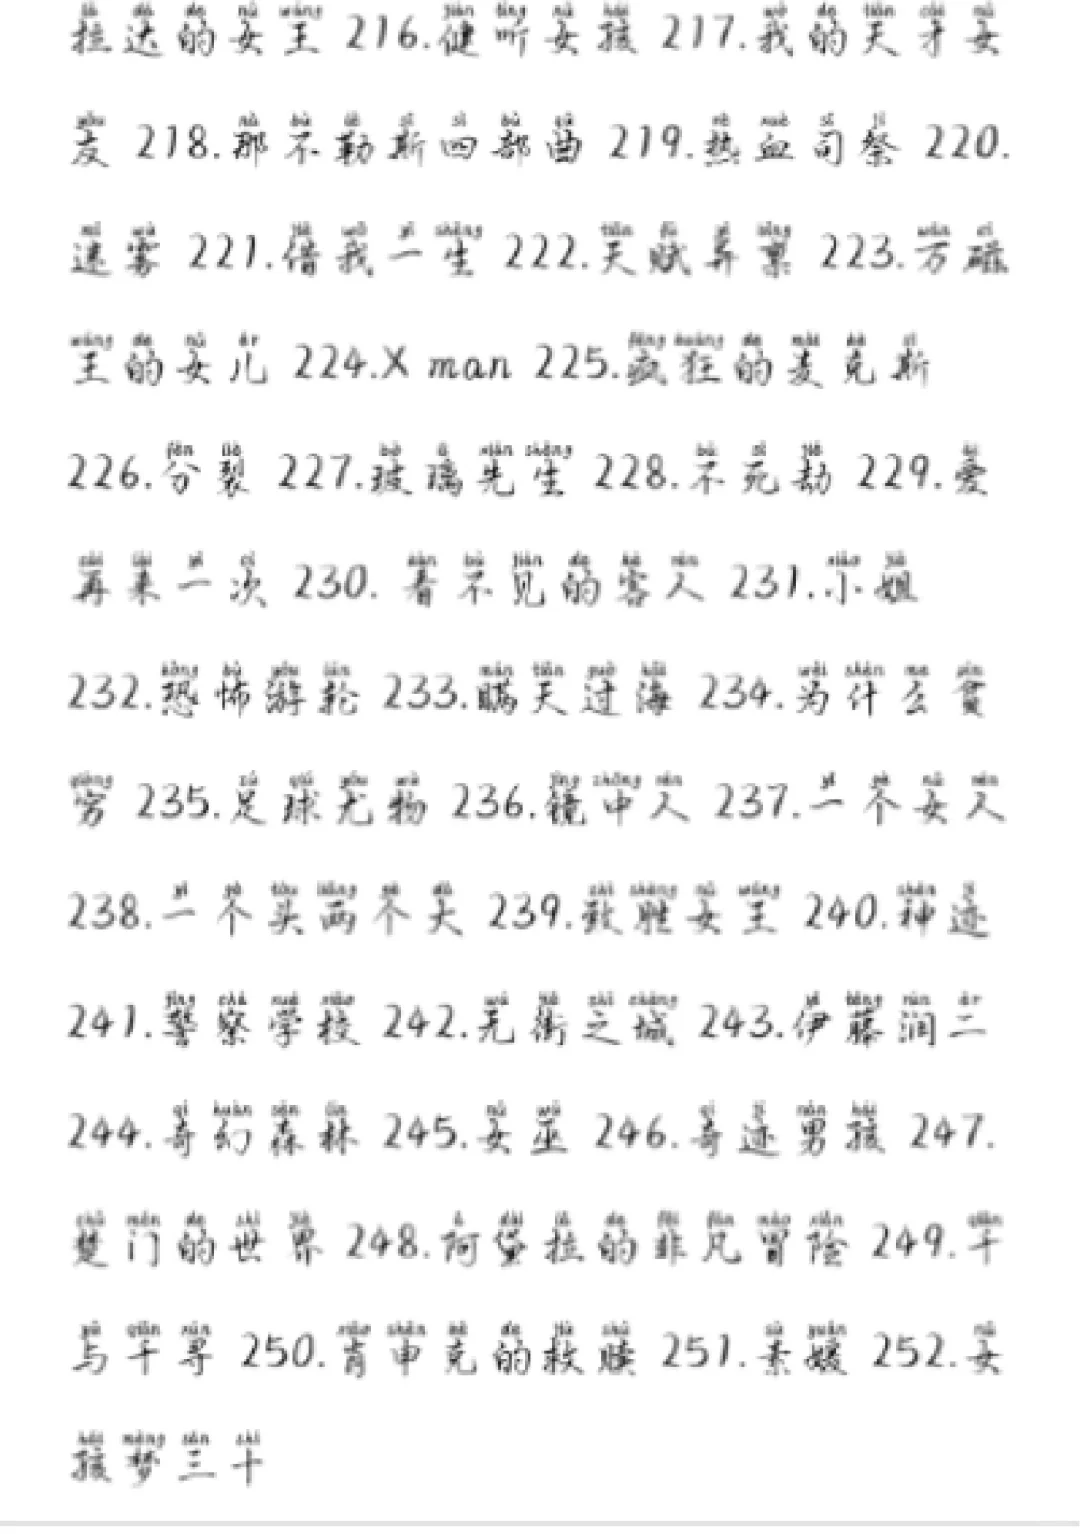 拉达的女王 216.健听女孩 217.我的天才女
友 218.那不勒斯四部曲 219.热血司祭 220.
迷雾 221.借我一生 222.天赋异禀 223.万磁
王的女儿 224.X man 225.疯狂的麦克斯
226.分裂 227.玻璃先生 228.不死劫 229.爱
再来一次 230. 看不见的客人 231.小姐
232.恐怖游轮 233.瞒天过海 234.为什么贫
穷 235.足球尤物 236.镜中人 237.一个女人
238.一个头两个大 239.致胜女王 240.神迹
241.警察学校 242.无街之城 243.伊藤润二
244.奇幻森林 245.女巫 246.奇迹男孩 247.
楚门的世界 248.阿黛拉的非凡冒险 249.千
与千寻 250.肖申克的救赎 251.素媛 252.女
孩梦三十